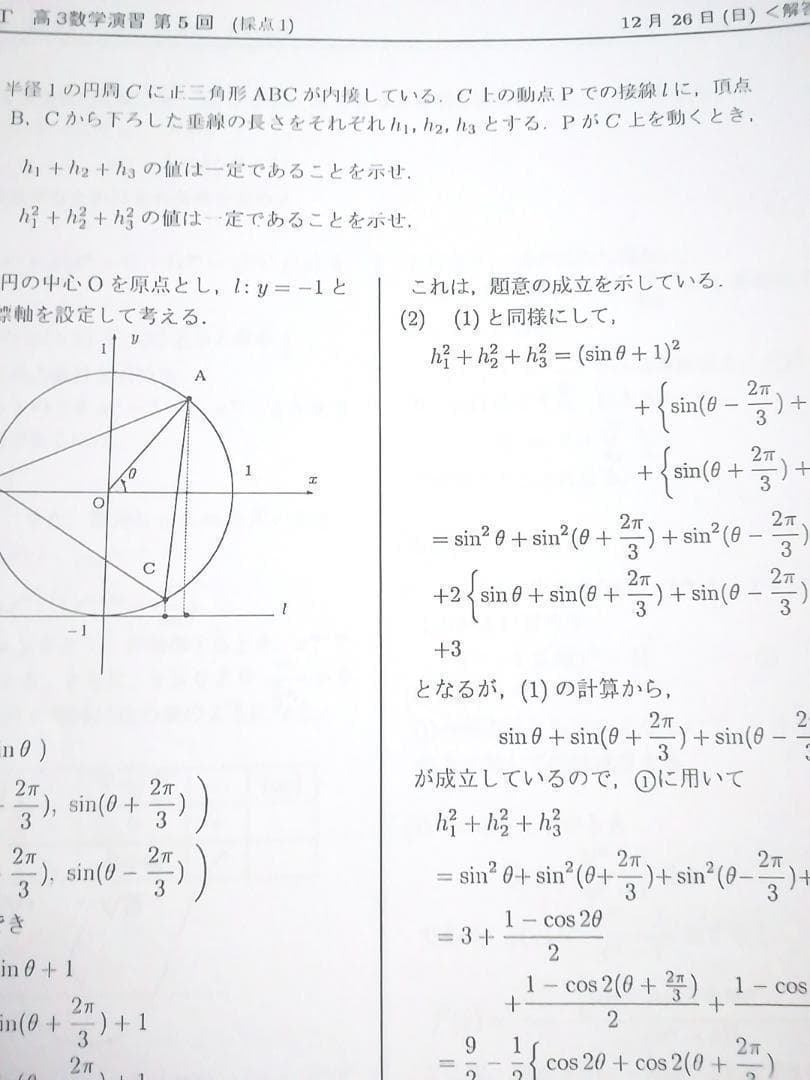 T 高3数学演習 第5回 (採点1)
12月26日(日) <解答
半径1の円周Cに正三角形ABCが内接している. C上の動点Pでの接線lに, 頂点
B, Cから下ろした垂線の長さをそれぞれh₁, h₂, h₃とする. PがC上を動くとき,
h₁ + h₂ + h₃ の値は一定であることを示せ.
h₁² + h₂² + h₃² の値は一定であることを示せ.
円の中心Oを原点とし, l: y = −1 と
標軸を設定して考える.
1 y
A
θ
1
x
O
C
−1
l
in θ )
2π/3), sin(θ + 2π/3) )
2π/3), sin(θ − 2π/3) )
でき
in θ + 1
in(θ + 2π/3) + 1
2π
これは, 題意の成立を示している.
(2) (1) と同様にして,
h₁² + h₂² + h₃² = (sin θ + 1)²
+ { sin(θ − 2π/3) +
+ { sin(θ + 2π/3) +
= sin² θ + sin²(θ + 2π/3) + sin²(θ − 2π/3)
+2 { sin θ + sin(θ + 2π/3) + sin(θ − 2π/3)
+3
となるが, (1) の計算から,
sin θ + sin(θ + 2π/3) + sin(θ − 2π/3
が成立しているので, ①に用いて
h₁² + h₂² + h₃²
= sin² θ + sin²(θ + 2π/3) + sin²(θ − 2π/3) +
= 3 + (1 − cos 2θ)/2
+ (1 − cos 2(θ + 2π/3))/2 + 1 − cos
= 9/2 − 1/2 { cos 2θ + cos 2(θ + 2π/3)